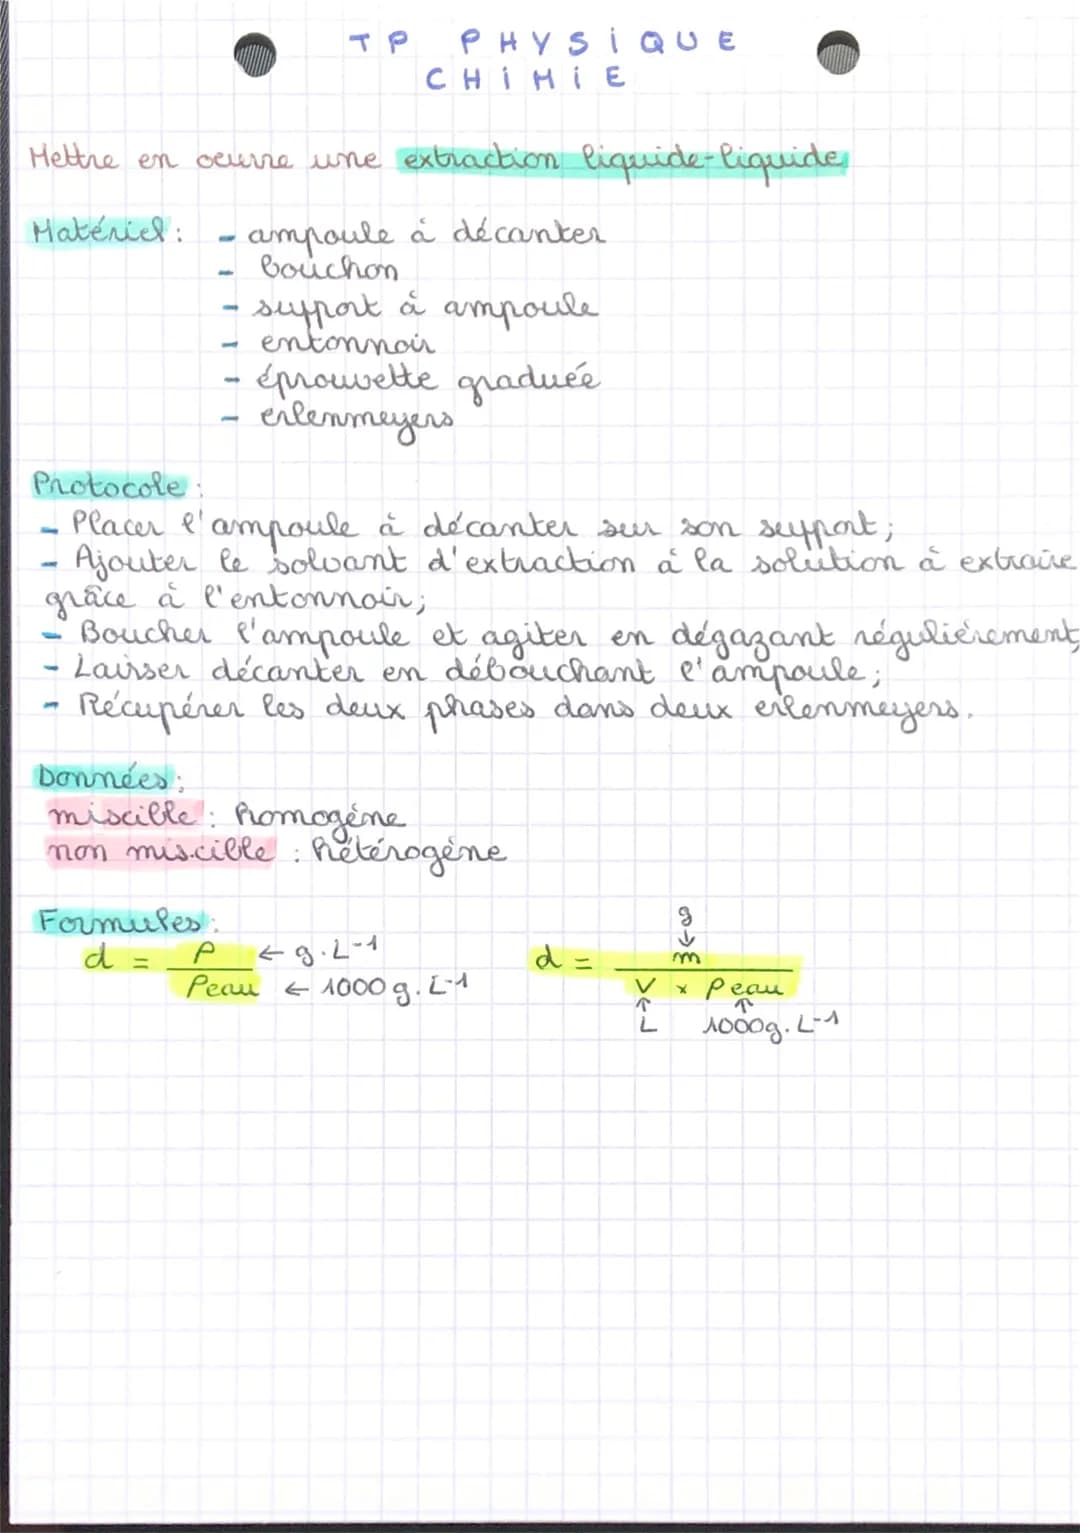 TP PHYSIQUE
CHIMIE
Mettre en oeuvre une extraction liquide-liquide
Matériel : - ampoule à décanter
- bouchon
- support à ampoule
- entonnoir
- éprouvette graduée
- erlenmeyers
Protocole :
- Placer l'ampoule à décanter sur son support ;
- Ajouter le solvant d'extraction à la solution à extraire
grâce à l'entonnoir ;
- Boucher l'ampoule et agiter en dégazant régulièrement ;
- Laisser décanter en débouchant l'ampoule ;
- Récupérer les deux phases dans deux erlenmeyers.
Données :
miscible : homogène
non miscible : hétérogène
Formules :
d = ρ ← g.L-1
ρeau ← 1000 g.L-1
g
↓
d = m
V × ρeau
↑ ↑
L 1000g.L-1